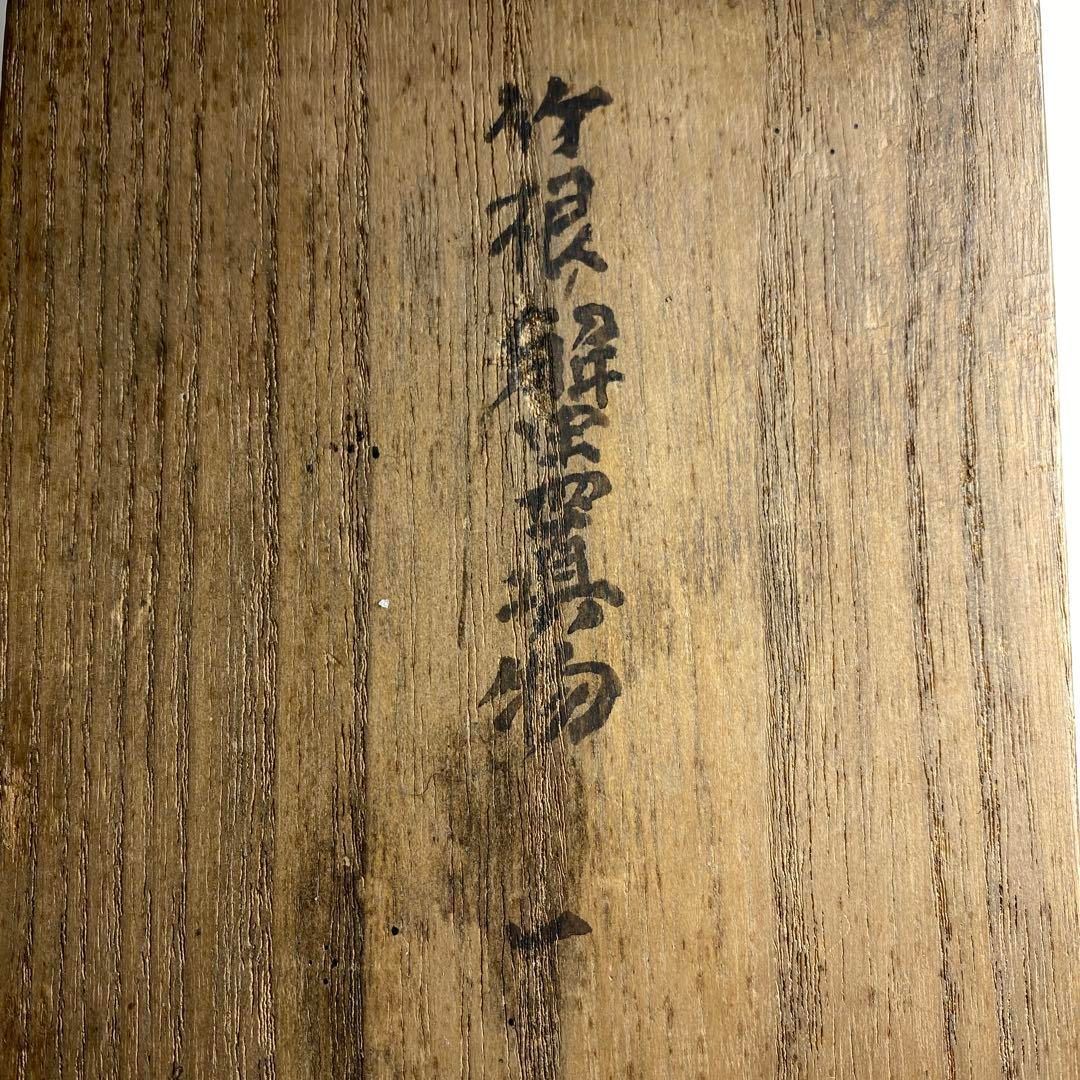 竹根蟹置物 一